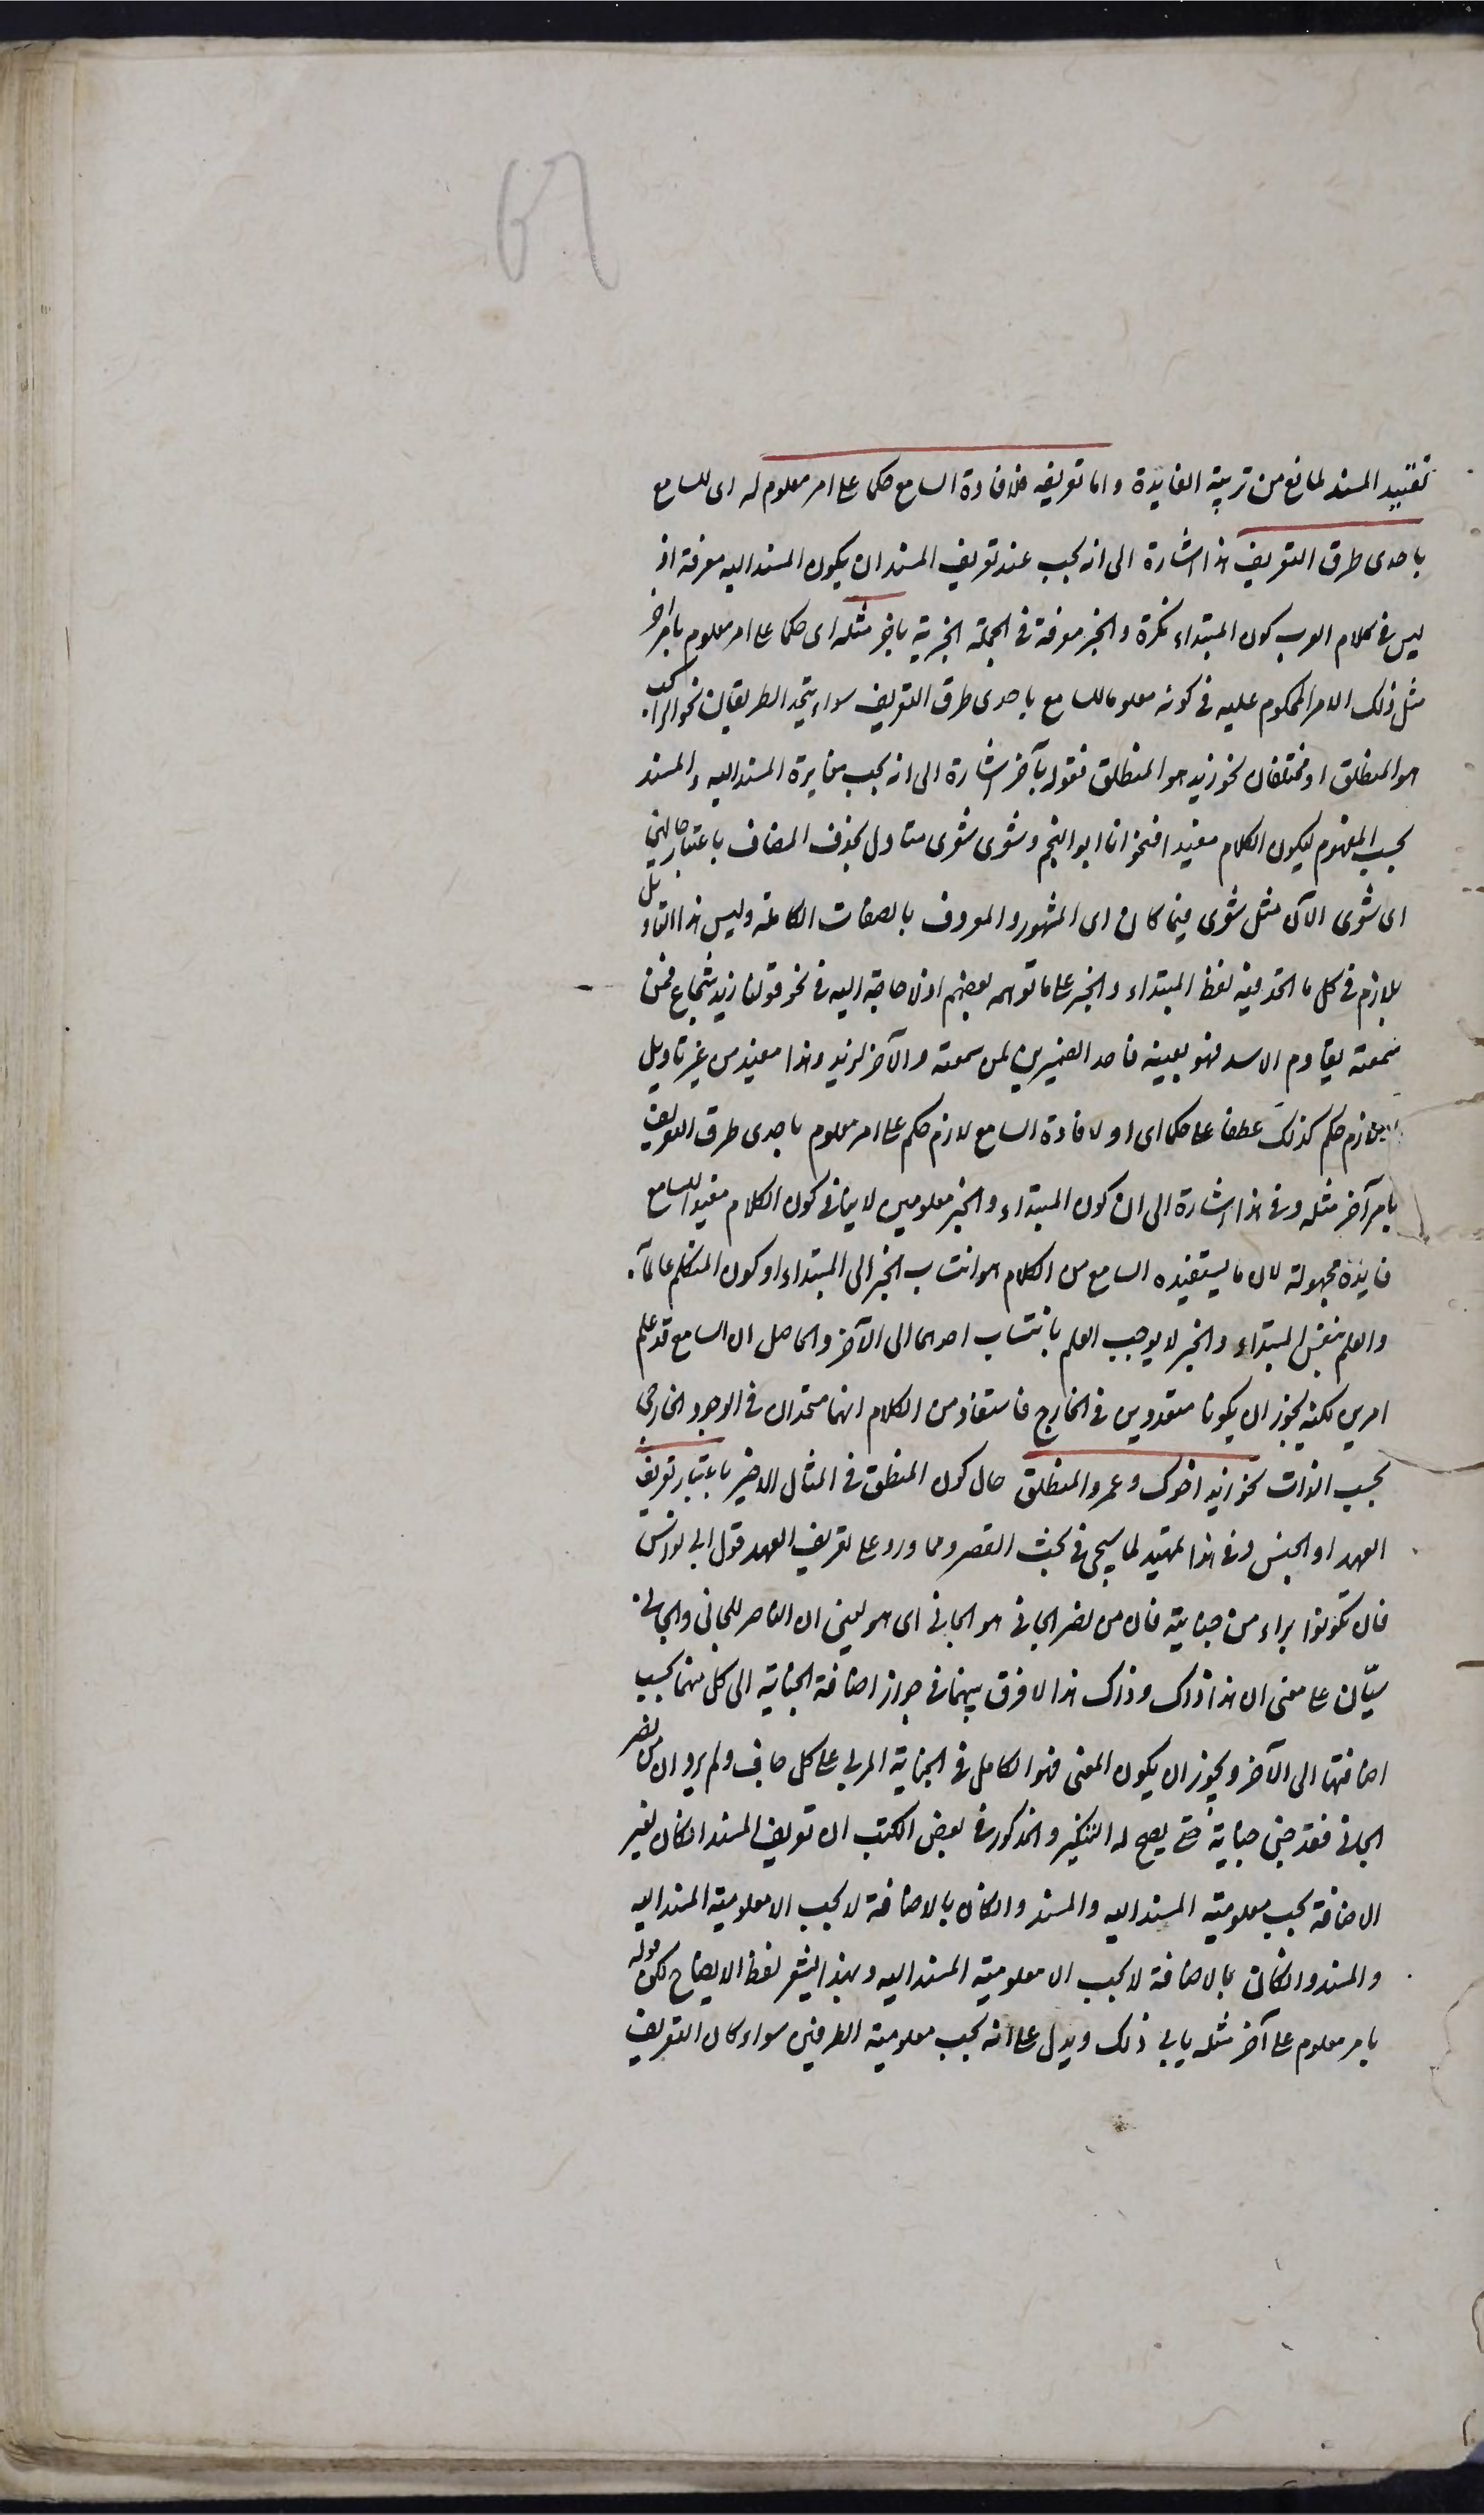 تقييد المسند لمانع من تربية الفايدة واما تعريفه فلافادة السامع حكما على امر معلوم له اى للسامع
باحدى طرق التعريف هذا اشارة الى انه يجب عند تعريف المسند ان يكون المسند اليه معرفة اذ
ليس فى كلام العرب كون المبتداء نكرة والخبر معرفة فى الجملة الخبرية باخر مثله اى حكما على امر معلوم بامر آخر
مثل ذلك الامر المحكوم عليه فى كونه معلوما للسامع باحدى طرق التعريف سواء يتحد الطريقان نحو الراكب
هو المنطلق او مختلفان نحو زيد هو المنطلق فقوله بآخر اشارة الى انه يجب مغايرة المسند اليه والمسند
بحسب المفهوم ليكون الكلام مفيدا فنحو انا ابو النجم وشعرى شعرى متاول بحذف المضاف باعتبار حالين
اى شعرى الآن مثل شعرى فيما كان اى المشهور والمعروف بالصفات الكاملة وليس هذا التاويل
بلازم فى كل ما اتحد فيه لفظ المبتداء والخبر على ما توهمه بعضهم اذ لا حاجة اليه فى نحو قولنا زيد شجاع فمن
سمعته يقاوم الاسد فهو بعينه فاحد الضميرين لمن سمعته والآخر لزيد وهذا مفيد من غير تاويل
او لازم حكم كذلك عطف على حكما اى او لافادة السامع لازم حكم على امر معلوم باحدى طرق التعريف
بامر آخر مثله وفى هذا اشارة الى ان كون المبتداء والخبر معلومين لا ينافى كون الكلام مفيدا للسامع
فايدة مجهولة لان ما يستفيده السامع من الكلام هو انتساب الخبر الى المبتداء او كون المتكلم عالما به
والعلم بنفس المبتداء والخبر لا يوجب العلم بانتساب احدهما الى الآخر والحاصل ان السامع قد علم
امرين لكنه يجوز ان يكونا متعددين فى الخارج فاستفاد من الكلام انهما متحدان فى الوجود الخارجى
بحسب الذات نحو زيد اخوك وعمرو المنطلق حال كون المنطلق فى المثال الاخير باعتبار تعريف
العهد او الجنس وفى هذا تمهيد لما سيجى فى بحث القصر ومما ورد على تعريف العهد قول ابى نواس
فان تكونوا براء من جنايته فان من نصر الجانى هو الجانى اى هو يعنى ان الناصر للجانى والجانى
سيّان على معنى ان هذا ذاك وذاك هذا لا فرق بينهما فى جواز اضافة الجناية الى كل منهما بحسب
اضافتها الى الآخر ويجوز ان يكون المعنى فهو الكامل فى الجناية المربى على كل جاف ولم يرد ان من نصر
الجانى فقد جنى جناية حتى يصح له التنكير والمذكور فى بعض الكتب ان تعريف المسند ان كان بغير
الاضافة يجب معلومية المسند اليه والمسند وان كان بالاضافة لا يجب الا معلومية المسند اليه
والمسند وان كان بالاضافة لا يجب الا معلومية المسند اليه وبهذا يشعر لفظ الايضاح لكن قوله
بامر معلوم على آخر مثله يابى ذلك ويدل على انه يجب معلومية الطرفين سواء كان التعريف